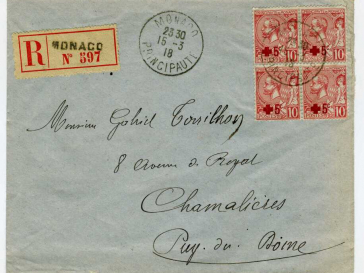 R
MONACO
Nº 397
MONACO
23 30
15-3
18
PRINCIPAUTÉ
+5 +5
10 10
+5 +5
10 10
Monsieur Gabriel Torrilhon
8 Avenue de Royat
Chamalières
Puy-du-Dôme